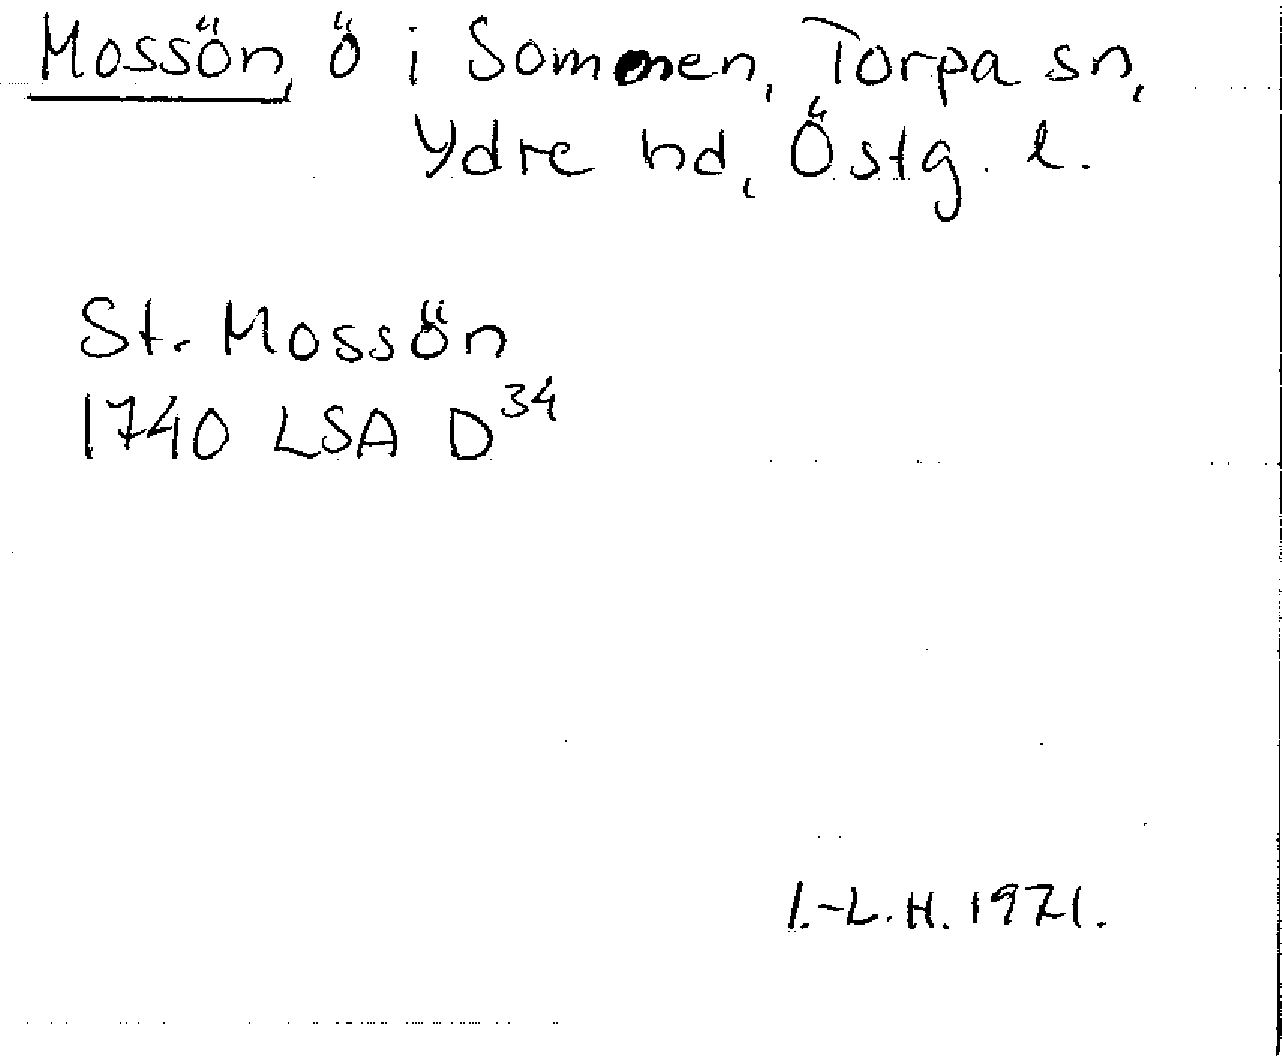 Mossön, ö i Sommen, Torpa sn,
Ydre hd, Östg. l.
St. Mossön
1740 LSA D³⁴
I.-L. H. 1971.